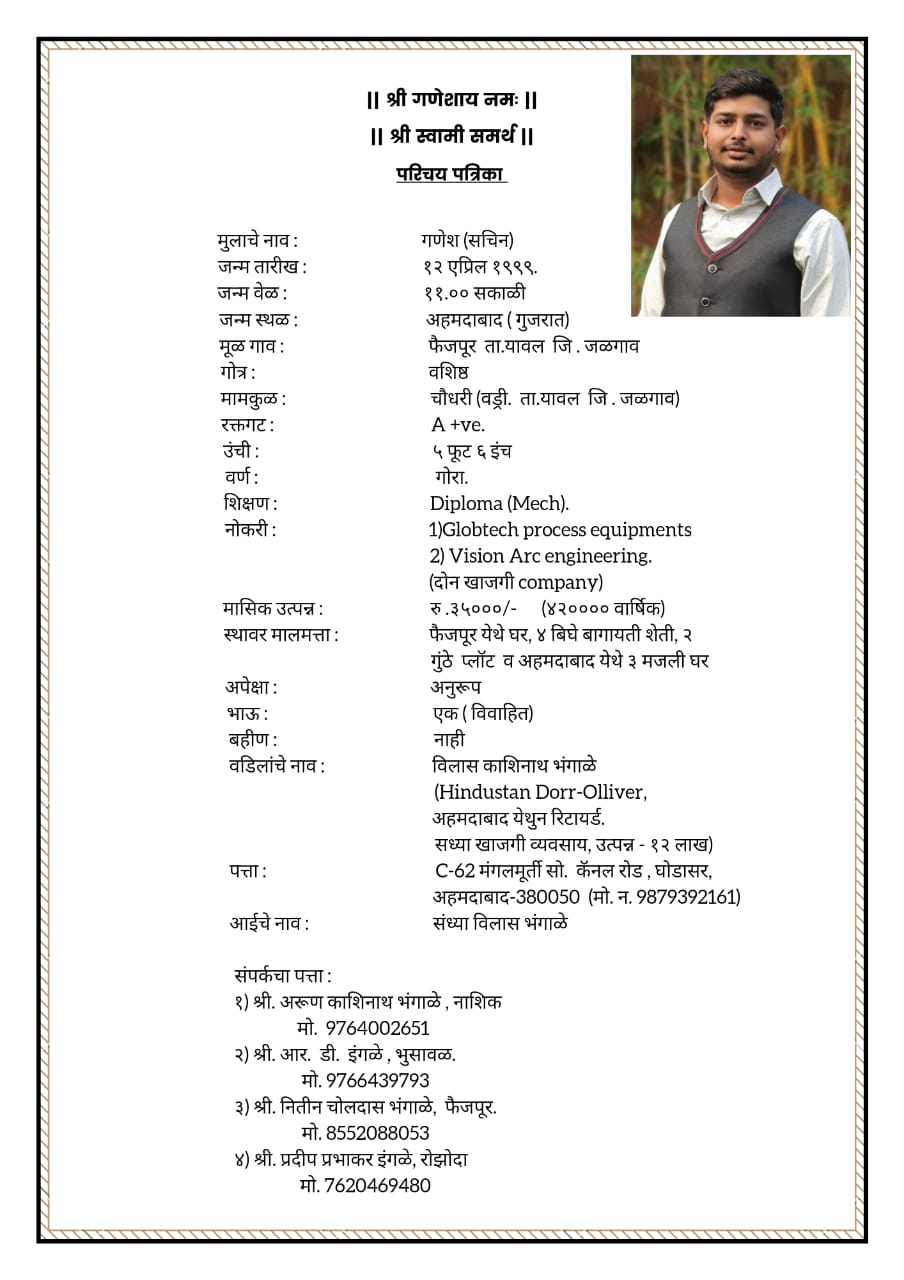 || श्री गणेशाय नमः ||
|| श्री स्वामी समर्थ ||
परिचय पत्रिका
मुलाचे नाव : गणेश (सचिन)
जन्म तारीख : १२ एप्रिल १९९९.
जन्म वेळ : ११.०० सकाळी
जन्म स्थळ : अहमदाबाद ( गुजरात)
मूळ गाव : फैजपूर ता.यावल जि . जळगाव
गोत्र : वशिष्ठ
मामकुळ : चौधरी (वड्री. ता.यावल जि . जळगाव)
रक्तगट : A +ve.
उंची : ५ फूट ६ इंच
वर्ण : गोरा.
शिक्षण : Diploma (Mech).
नोकरी : 1)Globtech process equipments
2) Vision Arc engineering.
(दोन खाजगी company)
मासिक उत्पन्न : रु .३५०००/- (४२०००० वार्षिक)
स्थावर मालमत्ता : फैजपूर येथे घर, ४ बिघे बागायती शेती, २
गुंठे प्लॉट व अहमदाबाद येथे ३ मजली घर
अपेक्षा : अनुरूप
भाऊ : एक ( विवाहित)
बहीण : नाही
वडिलांचे नाव : विलास काशिनाथ भंगाळे
(Hindustan Dorr-Olliver,
अहमदाबाद येथुन रिटायर्ड.
सध्या खाजगी व्यवसाय, उत्पन्न - १२ लाख)
पत्ता : C-62 मंगलमूर्ती सो. कॅनल रोड , घोडासर,
अहमदाबाद-380050 (मो. न. 9879392161)
आईचे नाव : संध्या विलास भंगाळे
संपर्कचा पत्ता :
१) श्री. अरूण काशिनाथ भंगाळे , नाशिक
मो. 9764002651
२) श्री. आर. डी. इंगळे , भुसावळ.
मो. 9766439793
३) श्री. नितीन चोलदास भंगाळे, फैजपूर.
मो. 8552088053
४) श्री. प्रदीप प्रभाकर इंगळे, रोझोदा
मो. 7620469480